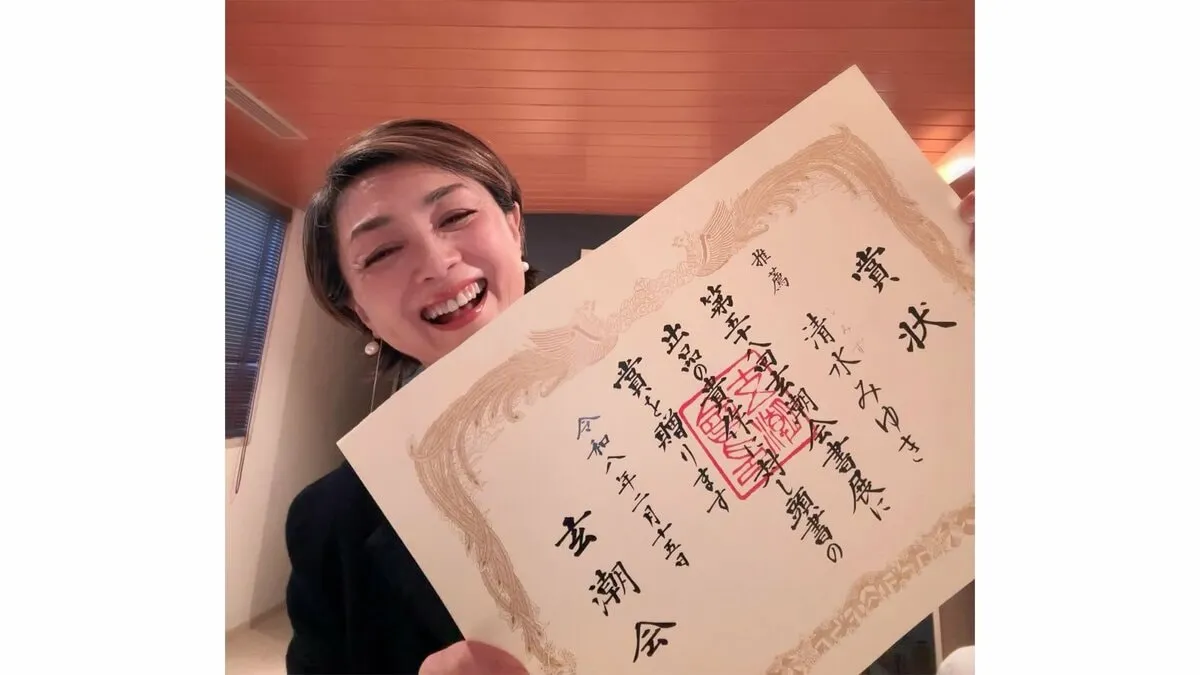 賞状
推薦
清水みゆき
第五十八回玄潮会書展に
出品の貴作に対し頭書の
賞を贈ります
令和八年二月十五日
玄潮会